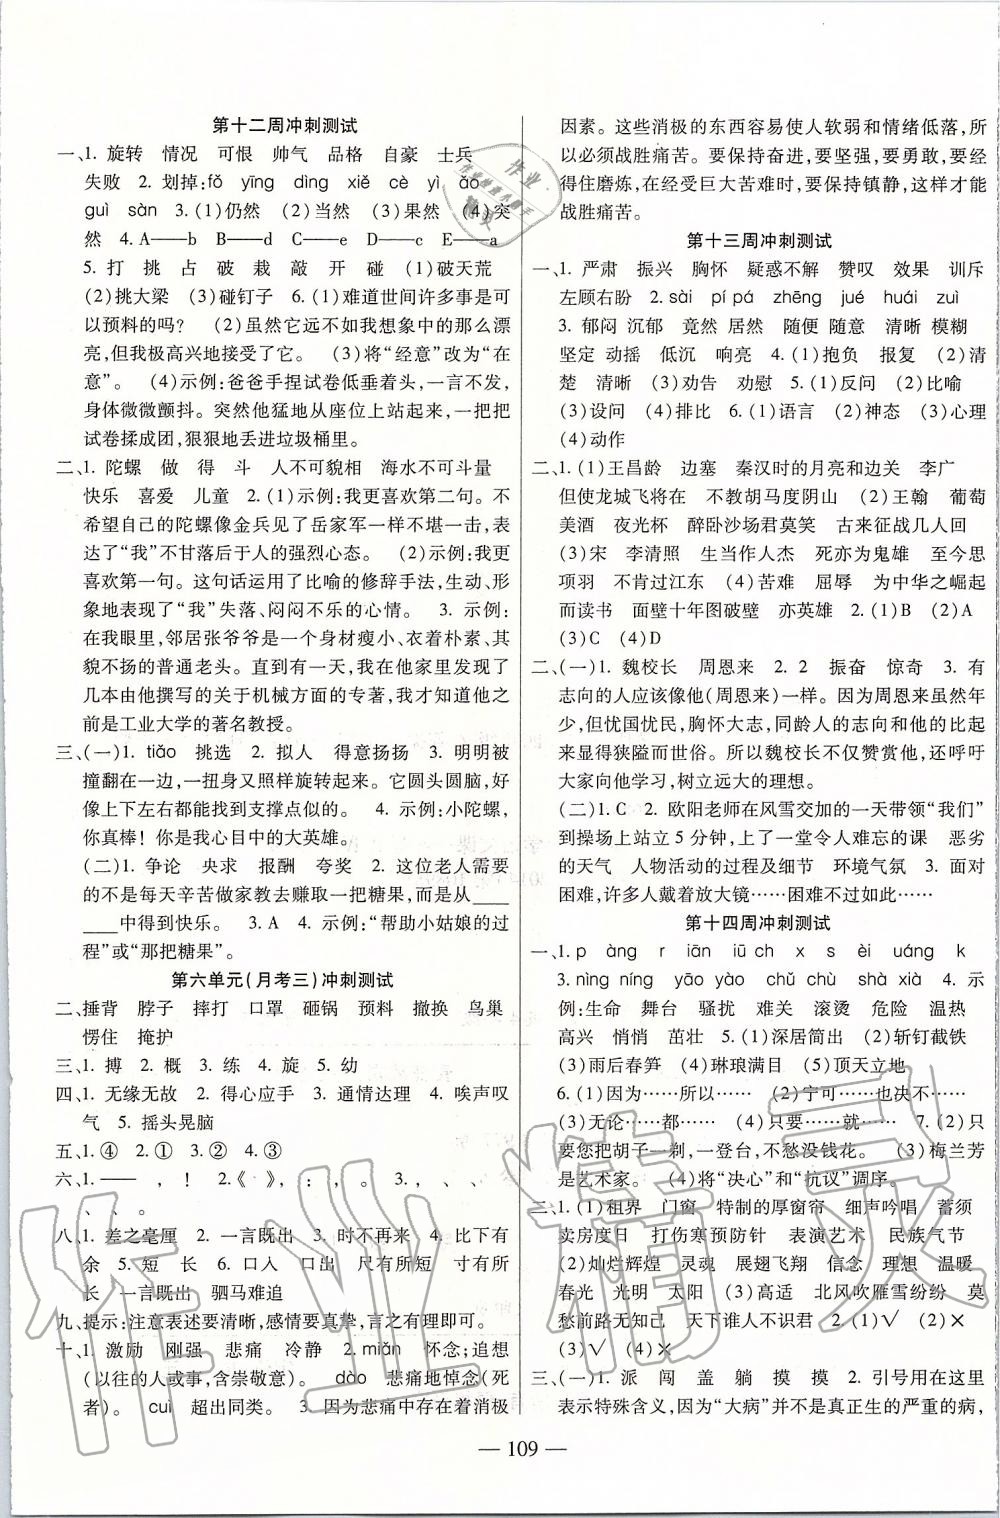 第十二周冲刺测试
一、1. 旋转 情况 可恨 帅气 品格 自豪 士兵
失败 2. 划掉:fǒ yīng dìng xiě cè yì ǎo
guì sàn 3. (1)仍然 (2)当然 (3)果然 (4)突
然 4. A——b B——d C——e D——c E——a
5. 打 挑 占 破 栽 敲 开 碰 (1)破天荒
(2)挑大梁 (3)碰钉子 6. (1)难道世间许多事是可
以预料的吗? (2)虽然它远不如我想象中的那么漂
亮,但我极高兴地接受了它。 (3)将“经意”改为“在
意”。 (4)示例:爸爸手捏试卷低垂着头,一言不发,
身体微微颤抖。突然他猛地从座位上站起来,一把把
试卷揉成团,狠狠地丢进垃圾桶里。
二、1. 陀螺 做 得 斗 人不可貌相 海水不可斗量
快乐 喜爱 儿童 2. (1)示例:我更喜欢第二句。不
希望自己的陀螺像金兵见了岳家军一样不堪一击,表
达了“我”不甘落后于人的强烈心态。 (2)示例:我更
喜欢第一句。这句话运用了比喻的修辞手法,生动、形
象地表现了“我”失落、闷闷不乐的心情。 3. 示例:
在我眼里,邻居张爷爷是一个身材瘦小、衣着朴素、其
貌不扬的普通老头。直到有一天,我在他家里见到了
几本由他撰写的关于机械方面的专著,我才知道他之
前是工业大学的著名教授。
三、(一)1. tiǎo 挑选 2. 拟人 得意扬扬 3. 明明被
撞翻在一边,一扭身又照样旋转起来。它圆头圆脑,好
像上下左右都能找到支撑点似的。 4. 示例:小陀螺,
你真棒!你是我心目中的大英雄。
(二)1. 争论 央求 报酬 夸奖 2. 这位老人需要的
不是每天辛苦做家教去赚取一把糖果,而是从____
____中得到快乐。 3. A 4. 示例:“帮助小姑娘的过
程”或“那把糖果”。
第六单元(月考三)冲刺测试
二、捶背 脖子 摔打 口罩 砸锅 预料 撤换 鸟巢
愣住 掩护
三、1. 搏 2. 概 3. 练 4. 旋 5. 幼
四、1. 无缘无故 2. 得心应手 3. 通情达理 4. 唉声叹
气 5. 摇头晃脑
五、1. ④ 2. ① 3. ② 4. ③
六、1. —— , ! 2.《 》, : , 。 3. , 、 、
、 、 。
八、1. 差之毫厘 2. 一言既出 3. 时不再来 4. 比下有
余 5. 短 长 6. 口入 口出 尺有所短 寸有所
长 一言既出 驷马难追
九、提示:注意表述要清晰,感情要真挚,言之有理即可。
十、1. 激励 刚强 悲痛 冷静 2. miǎn 怀念;追想
(以往的人或事,含崇敬意)。 dào 悲痛地悼念(死
者)。 cuì 超出同类。 3. 因为悲痛中存在着消极
因素。这些消极的东西容易使人软弱和情绪低落,所
以必须战胜痛苦。要保持奋进,要坚强,要勇敢,要经
得住磨炼,在经受巨大苦难时,要保持镇静,这样才能
战胜痛苦。
第十三周冲刺测试
一、1. 严肃 振兴 胸怀 疑惑不解 赞叹 效果 训斥
左顾右盼 2. sài pí pá zhēng jué huái zuì
3. 郁闷 沉郁 竟然 居然 随便 随意 清晰 模糊
坚定 动摇 低沉 响亮 4. (1)抱负 报复 (2)清
楚 清晰 (3)劝告 劝慰 5. (1)反问 (2)比喻
(3)设问 (4)排比 6. (1)语言 (2)神态 (3)心理
(4)动作
二、1. (1)王昌龄 边塞 秦汉时的月亮和边关 李广
但使龙城飞将在 不教胡马度阴山 (2)王翰 葡萄
美酒 夜光杯 醉卧沙场君莫笑 古来征战几人回
(3)宋 李清照 生当作人杰 死亦为鬼雄 至今思
项羽 不肯过江东 (4)苦难 屈辱 为中华之崛起
而读书 面壁十年图破壁 亦英雄 2. (1)B (2)A
(3)C (4)D
二、(一)1. 魏校长 周恩来 2. 2 振奋 惊奇 3. 有
志向的人应该像他(周恩来)一样。因为周恩来虽然年
少,但忧国忧民,胸怀大志,同龄人的志向和他的比起
来显得狭隘而世俗。所以魏校长不仅赞赏他,还呼吁
大家向他学习,树立远大的理想。
(二)1. C 2. 欧阳老师在风雪交加的一天带领“我们”
到操场上站立5分钟,上了一堂令人难忘的课 恶劣
的天气 人物活动的过程及细节 环境气氛 3. 面对
困难,许多人戴着放大镜……困难不过如此……
第十四周冲刺测试
一、1. p àng r iān iū ch x s èi uáng k
2. nìng níng yāo yào chǔ chù shà xià 4. 示
例:生命 舞台 骚扰 难关 滚烫 危险 温热
高兴 悄悄 茁壮 5. (1)深居简出 (2)斩钉截铁
(3)雨后春笋 (4)琳琅满目 (5)顶天立地
6. (1)因为……所以…… (2)宁可……也决不……
(3)无论……都…… (4)只要……就…… 7. (2)只要
您把胡子一剃,一登台,不愁没钱花。 (3)梅兰芳
是艺术家。 (4)将“决心”和“抗议”调序。
二、1. (1)租界 门窗 特制的厚窗帘 细声吟唱 蓄须
卖房度日 打伤寒预防针 表演艺术 民族气节
(2)灿烂辉煌 灵魂 展翅飞翔 信念 理想 温暖
春光 光明 太阳 (3)高适 北风吹雁雪纷纷 莫
愁前路无知己 天下谁人不识君 2. (1)√ (2)×
(3)√ (4)×
三、(一)1. 派 闯 盖 躺 摸 摸 2. 引号用在这里
表示特殊含义,因为“大病”并不是真正生的严重的病,
— 109 —
作业精灵